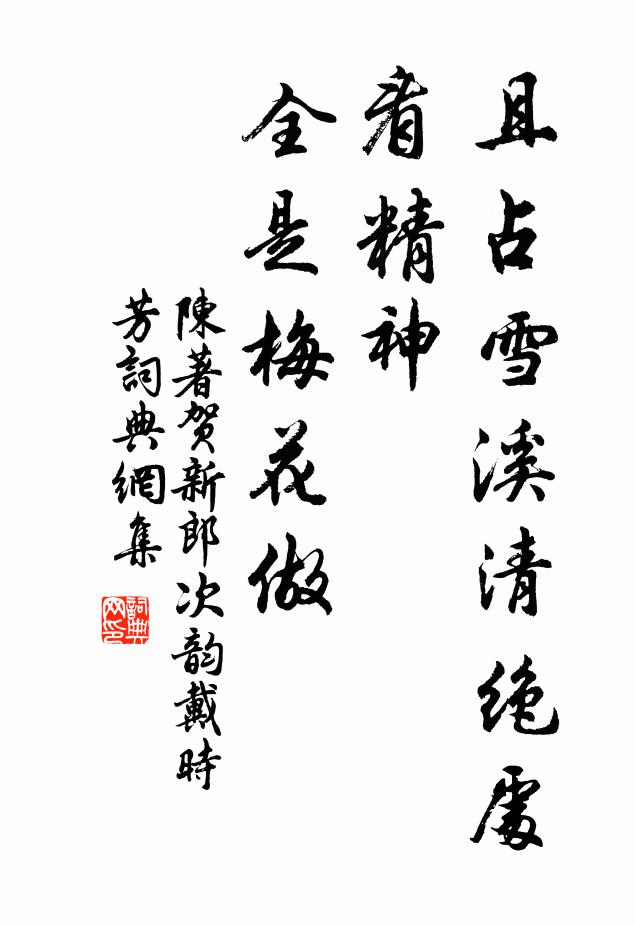 且占雪溪清絶處
看精神
全是梅花做
陳著賀新郎次韵戴時
芳詞典網集
詞典网印